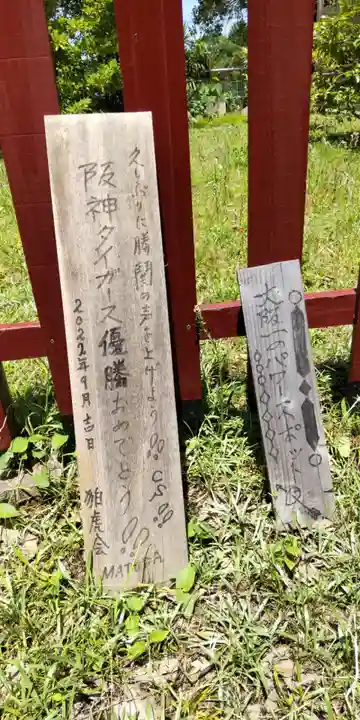 久しぶりに勝鬨の声を上げよう!!! CS!!!
阪神タイガース優勝おめでとう!!!
2022年9月吉日
雅慶会
MATUDA
大阪一のパワースポット